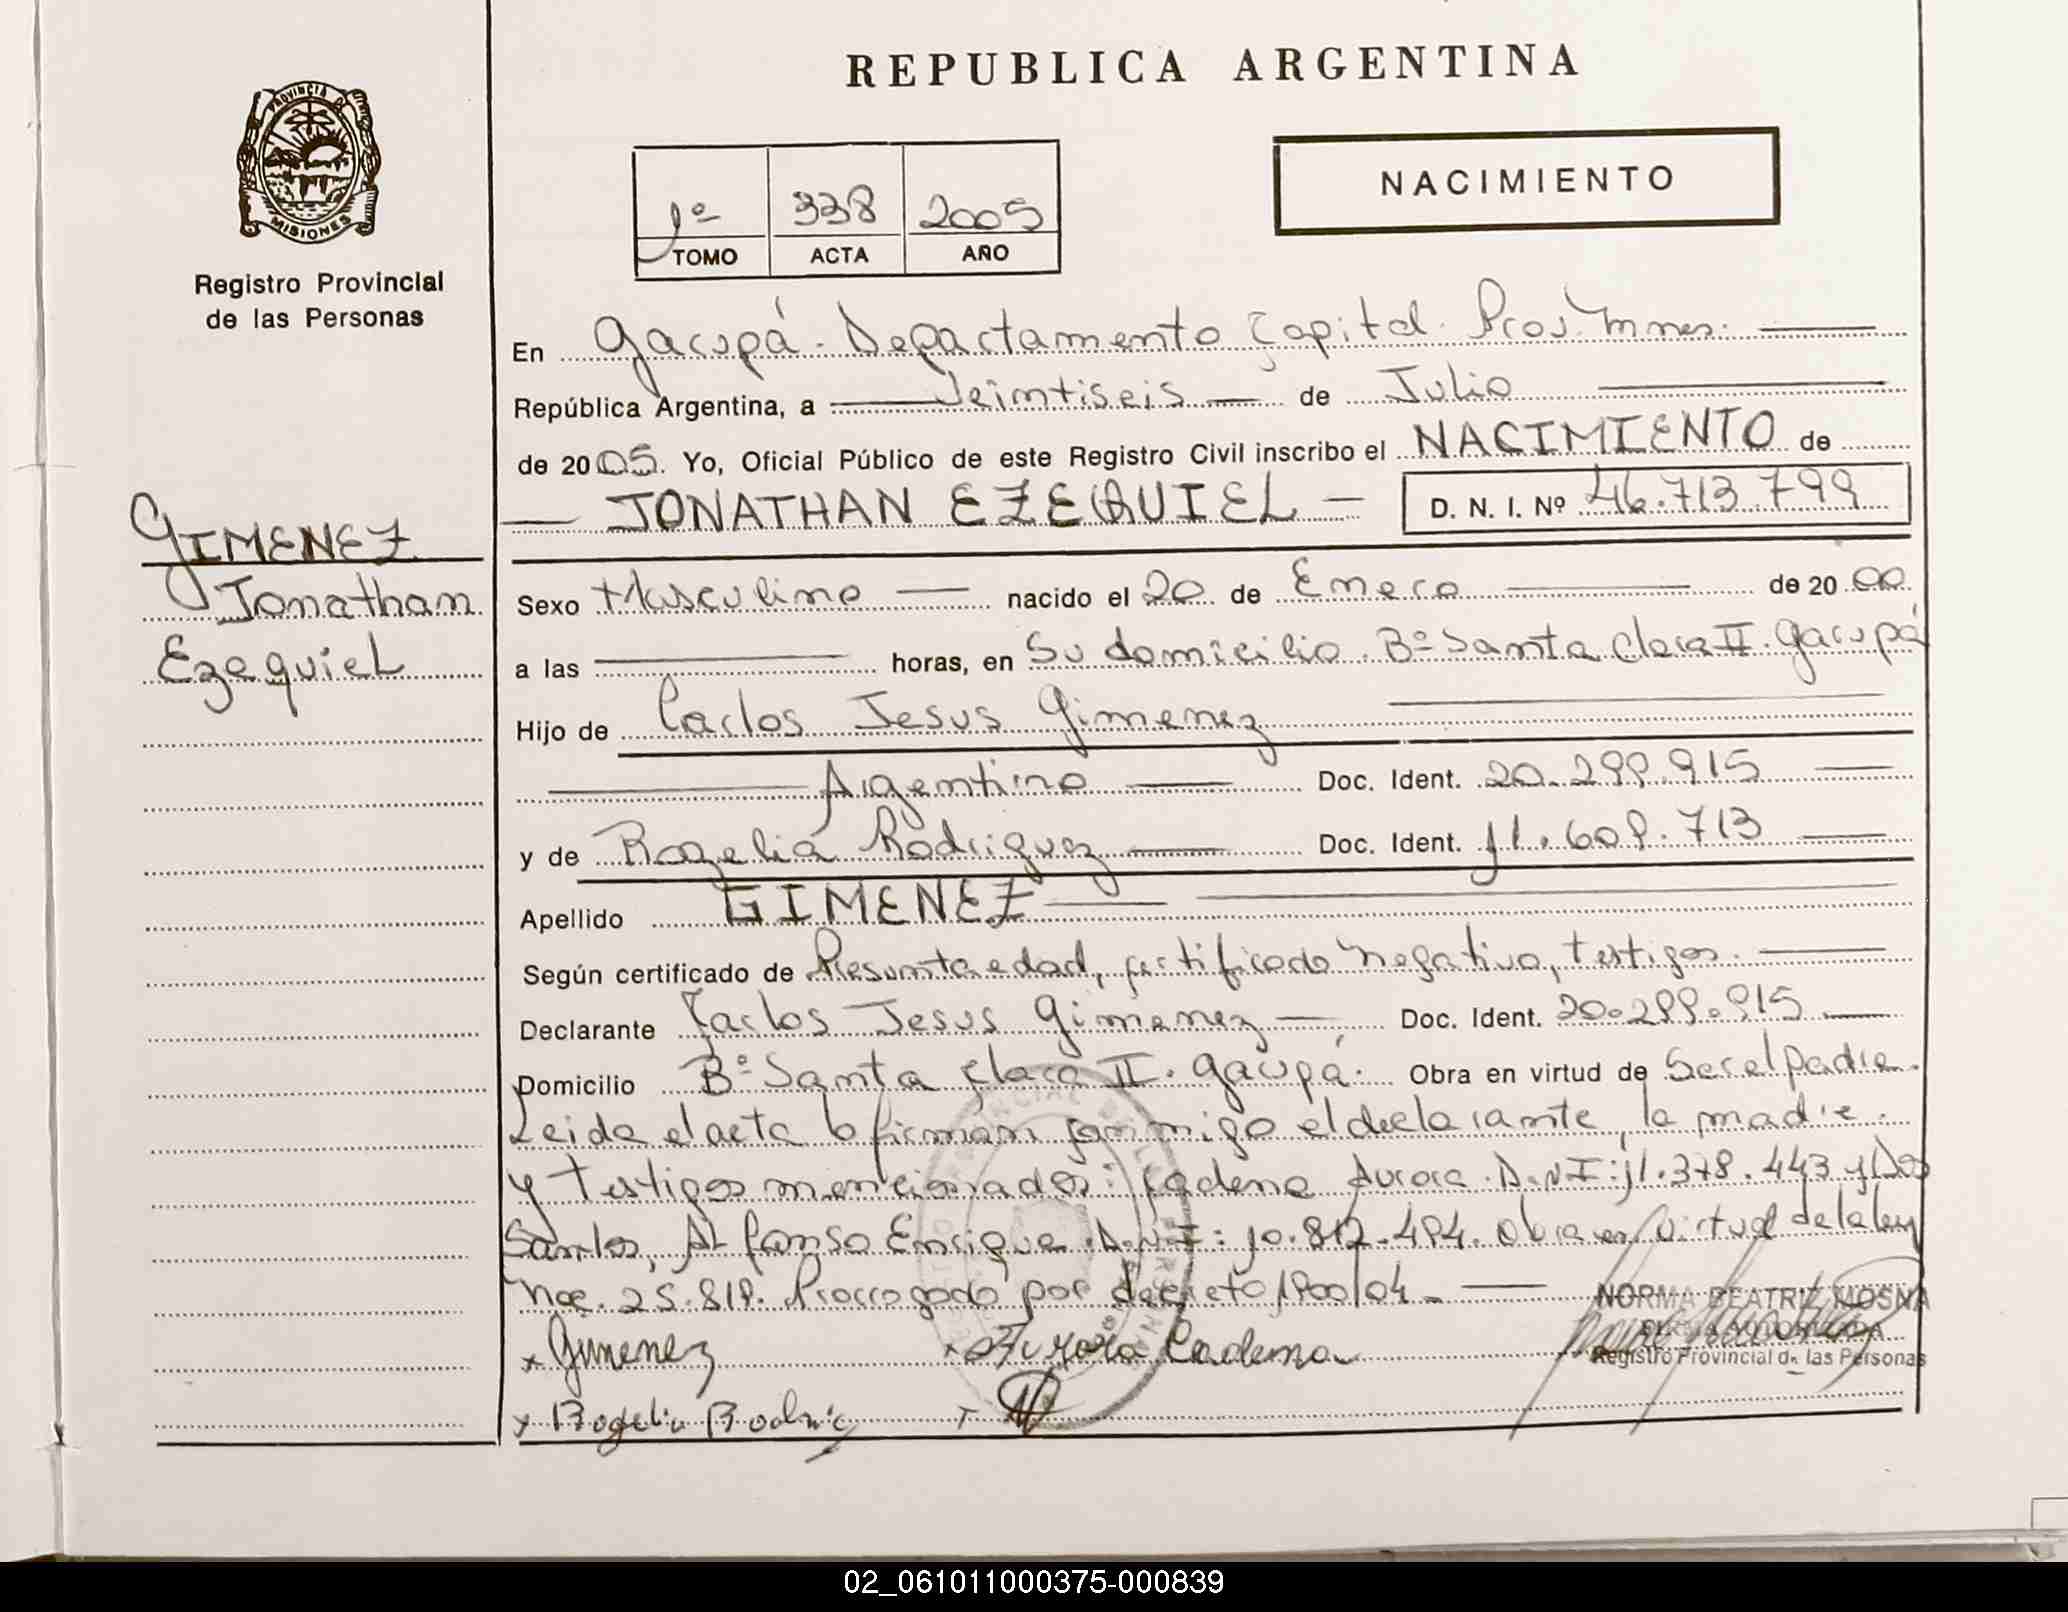 REPUBLICA ARGENTINA
PROVINCIA DE
MISIONES
Registro Provincial
de las Personas
1º 338 2005
TOMO ACTA AÑO
NACIMIENTO
En Garupá. Departamento Capital. Prov. Mnes.
República Argentina, a Veintiseis de Julio
de 2005. Yo, Oficial Público de este Registro Civil inscribo el NACIMIENTO de
JONATHAN EZEQUIEL D. N. I. Nº 46.713.799
GIMENEZ
Jonathan
Ezequiel
Sexo Masculino nacido el 20 de Enero de 2000.
a las horas, en Su domicilio. Bº Santa Clara II. Garupá
Hijo de Carlos Jesus Gimenez
Argentino Doc. Ident. 20.299.915
y de Rogelia Rodriguez Doc. Ident. 11.609.713
Apellido GIMENEZ
Según certificado de Presunta edad, certificado negativo, testigos.
Declarante Carlos Jesus Gimenez Doc. Ident. 20.299.915
Domicilio Bº Santa Clara II. Garupá. Obra en virtud de Ser el padre.
Leida el acta la firman conmigo el declarante, la madre.
y testigos mencionados: Cadena Aurora. D.N.I: 11.378.443 y Dos
Santos, Alfonso Enrique. D.N.I: 10.812.494. Obra en Virtud de la ley
Nac. 25.819. Prorrogado por decreto 1900/04
NORMA BEATRIZ MOSNA
Registro Provincial de las Personas
x Gimenez x Aurora Cadena
x Rogelia Rodrig x
02_061011000375-000839